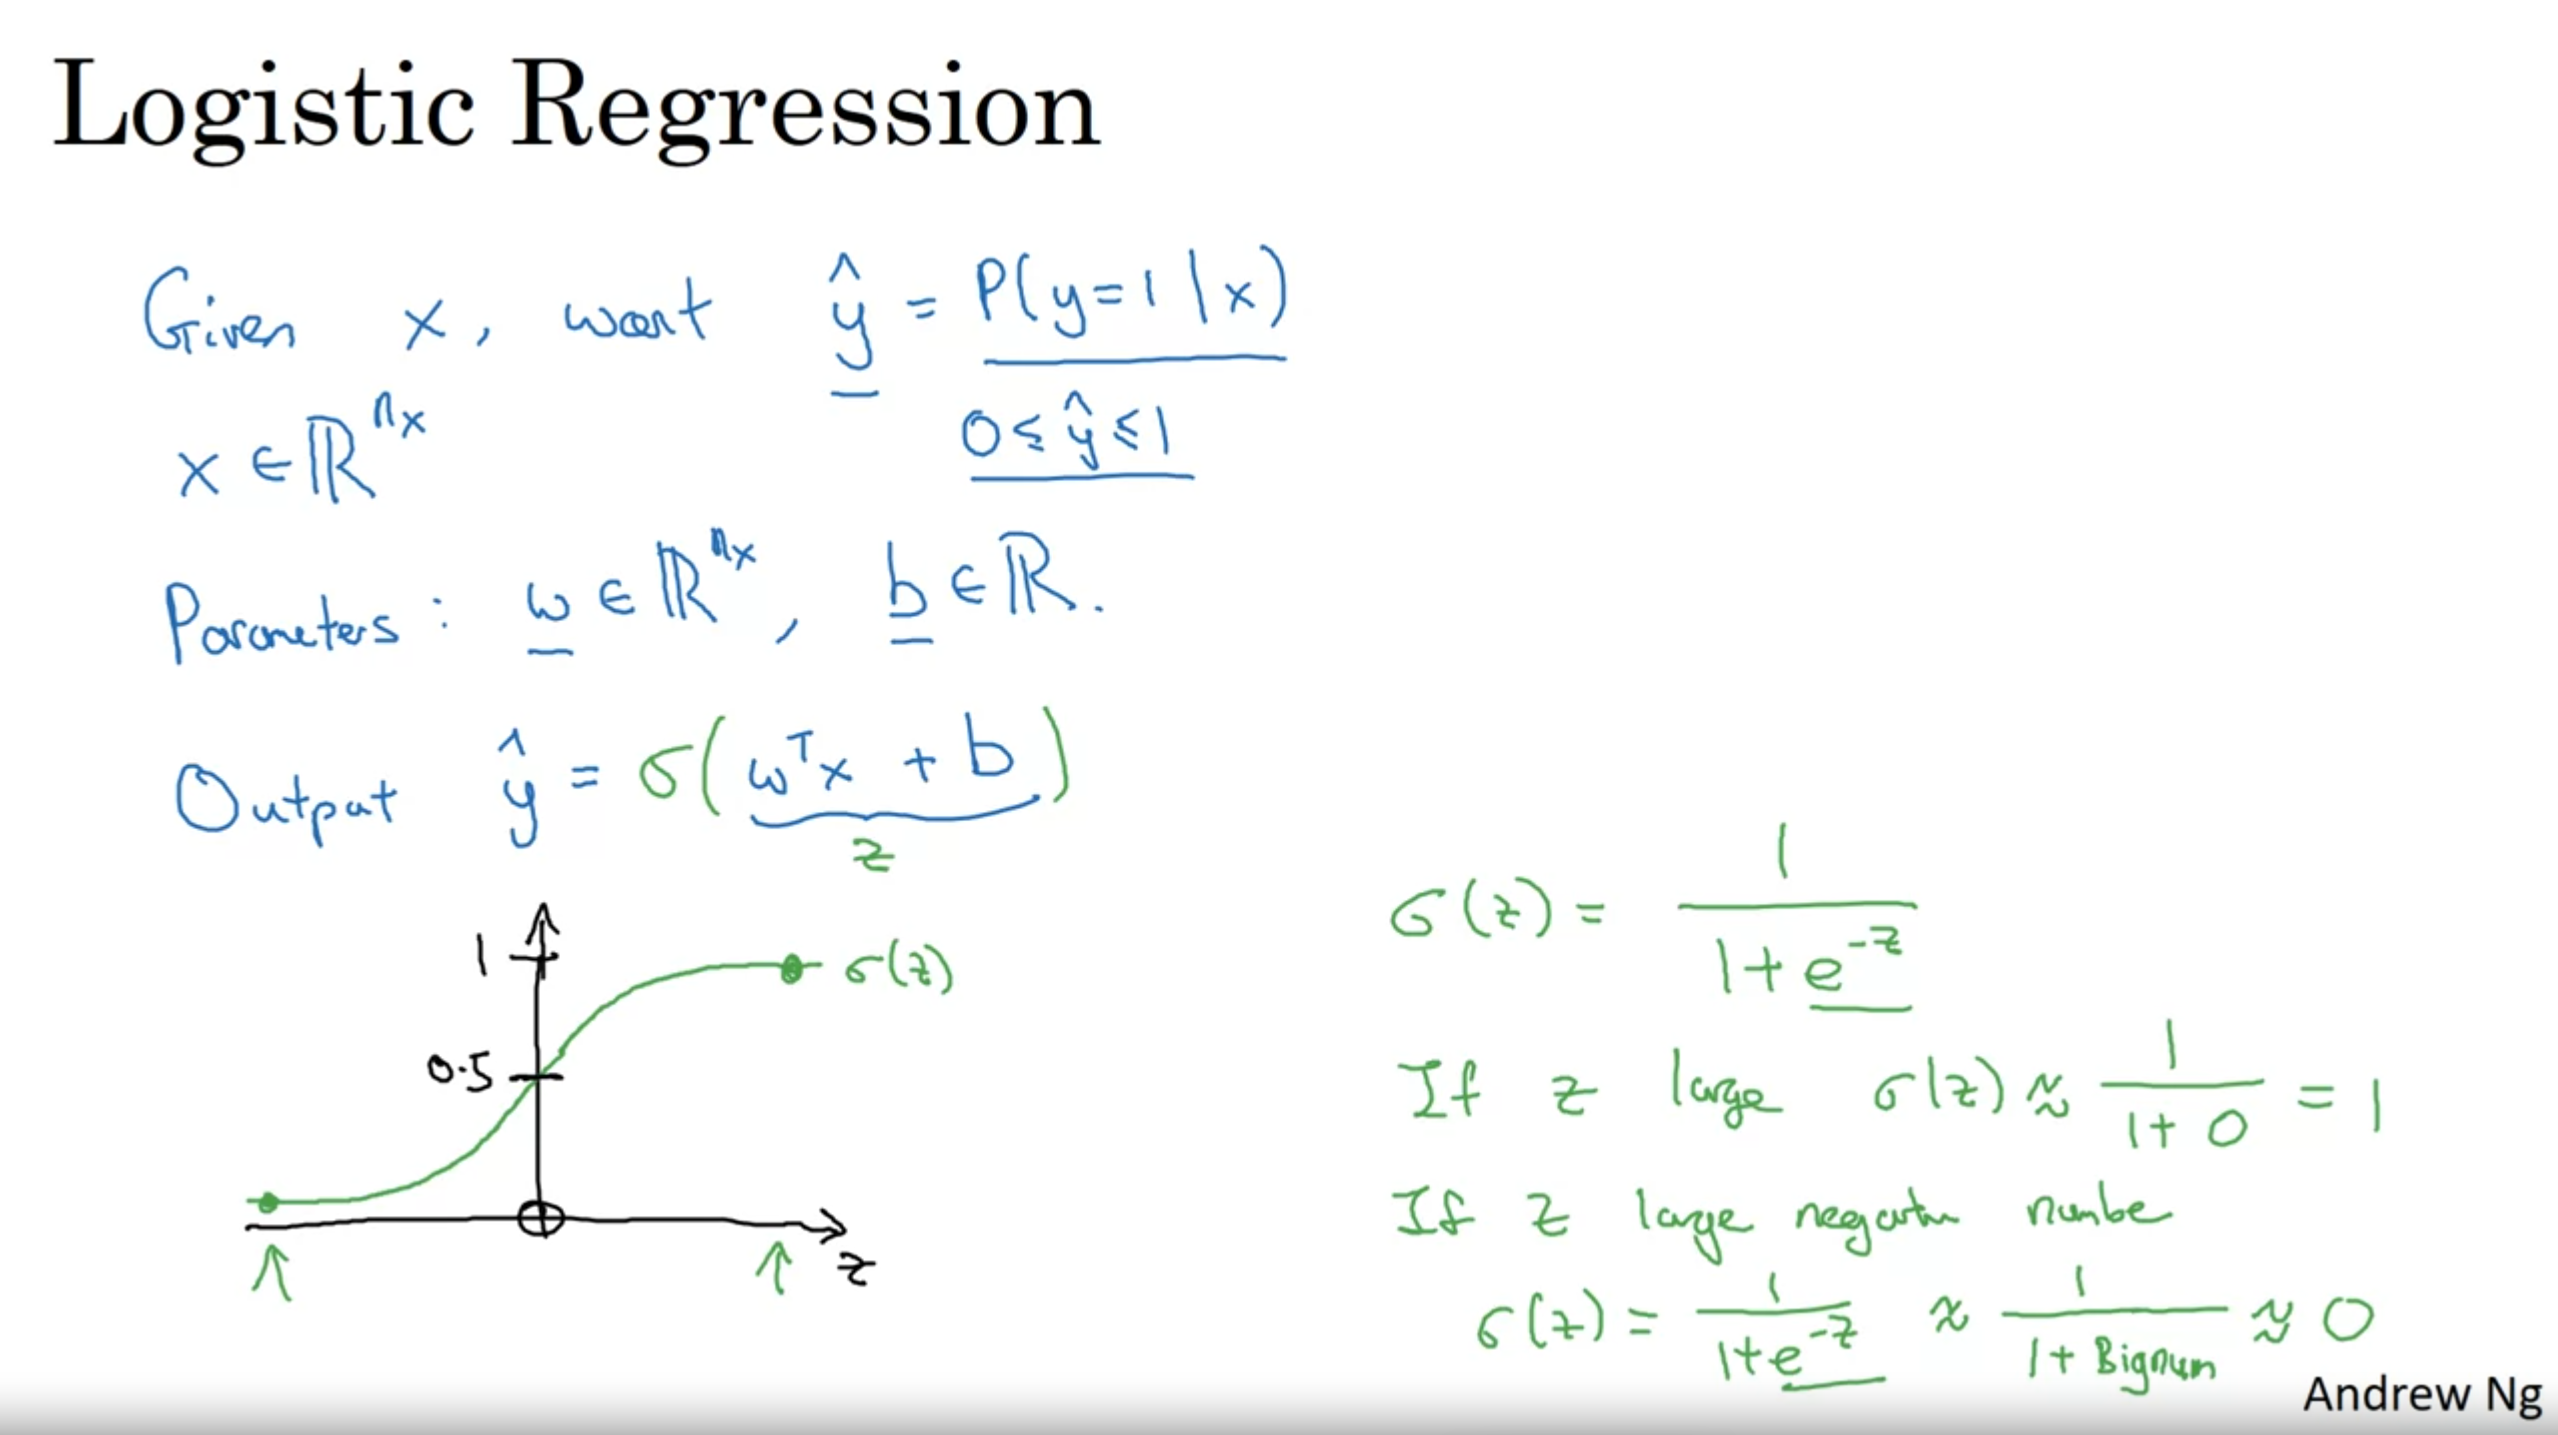 Logistic Regression
Given x, want ŷ = P(y=1|x)
x ∈ ℝ^{n_x}
0 ≤ ŷ ≤ 1
Parameters: w ∈ ℝ^{n_x}, b ∈ ℝ.
Output ŷ = σ(wᵀx + b)
z
1
σ(z)
0.5
z
σ(z) = 1/(1+e^{-z})
If z large σ(z) ≈ 1/(1+0) = 1
If z large negative number
σ(z) = 1/(1+e^{-z}) ≈ 1/(1+Bignum) ≈ 0
Andrew Ng